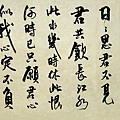 日〻思君不見
君共飲長江水
此水幾時休此恨
何時已只願君心
似我心定不負